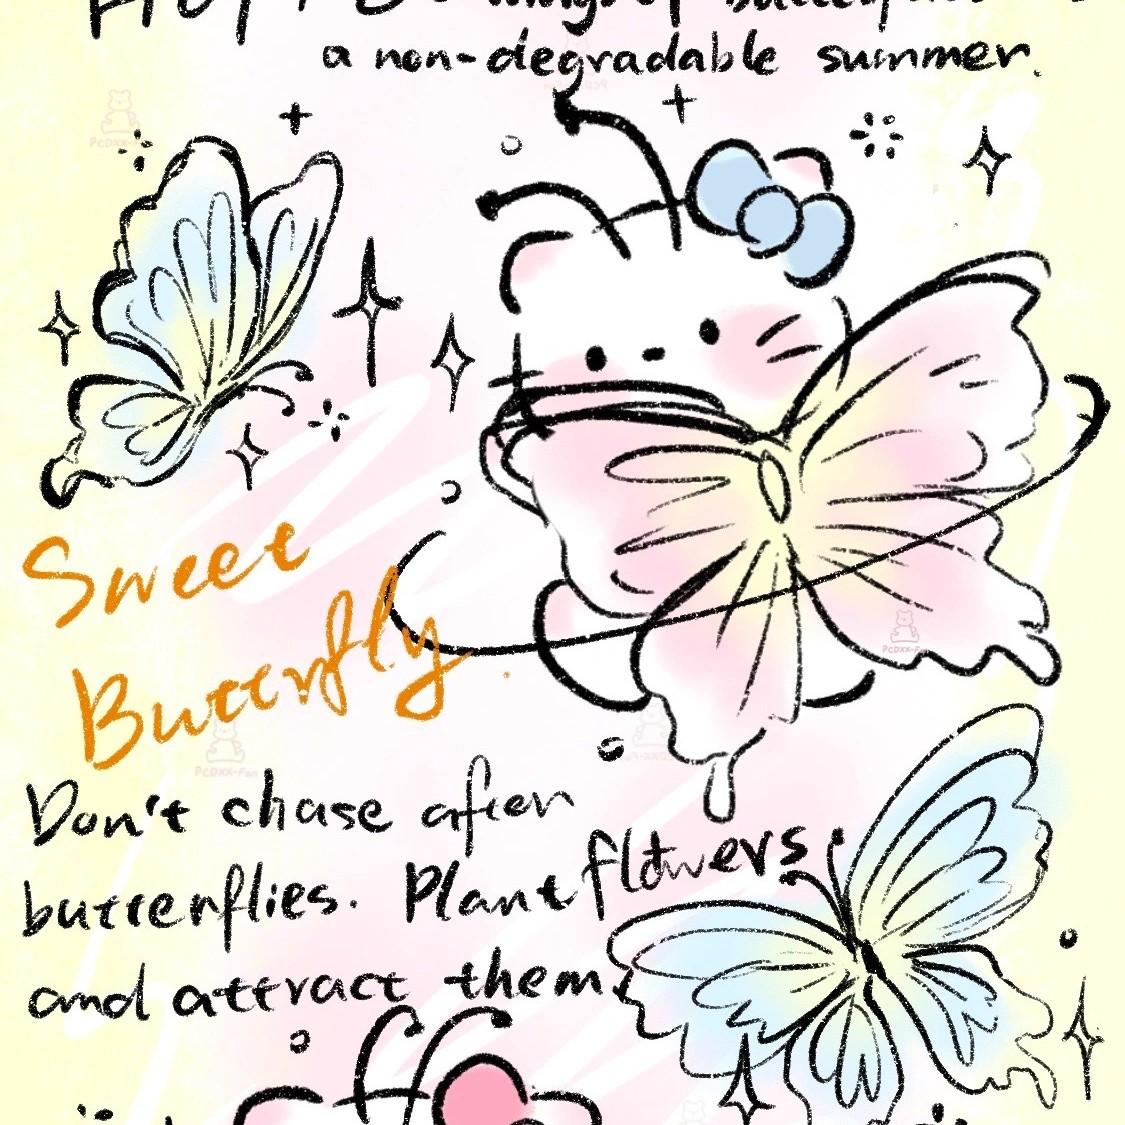 a non-degradable summer.
Sweet
Butterfly.
Don't chase after
butterflies. Plant flowers
and attract them.
PCDXX-Fan